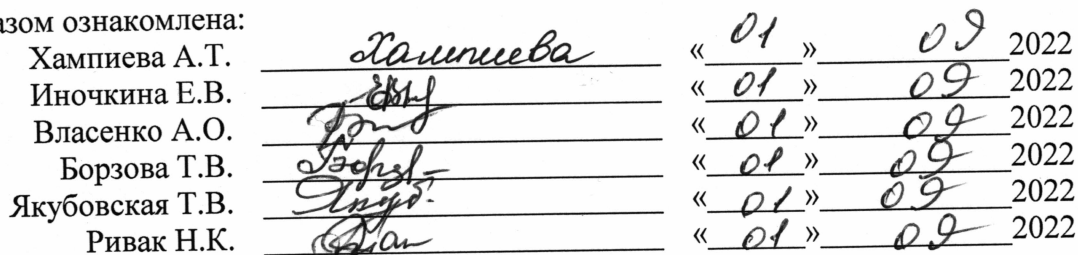 азом ознакомлена:
Хампиева А.Т. Хампиева « 01 » 09 2022
Иночкина Е.В. « 01 » 09 2022
Власенко А.О. « 01 » 09 2022
Борзова Т.В. « 01 » 09 2022
Якубовская Т.В. « 01 » 09 2022
Ривак Н.К. « 01 » 09 2022